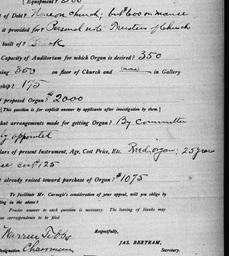 of Debt? None on Church; but 600 on manse
is provided for? Personal note Trustees of Church
built of? Brick
Capacity of Auditorium for which Organ is desired? 350
350 on floor of Church and (none) in Gallery
175
of proposed Organ? $2000
[This question is for explicit answer by applicants after investigation by them.]
what arrangements made for getting Organ? By Committee
appointed
of present Instrument, Age, Cost Price, Etc. Reed organ; 25 years
cost 125
already raised toward purchase of Organ? $1075
To facilitate Mr. Carnegie's consideration of your appeal, will you oblige by
in the above?
Precise answer to each question is necessary. The leaving of blanks may
correspondence to be filed
Respectfully,
Warren Tibbs
JAS. BERTRAM,
Designation Chairman
Secretary.